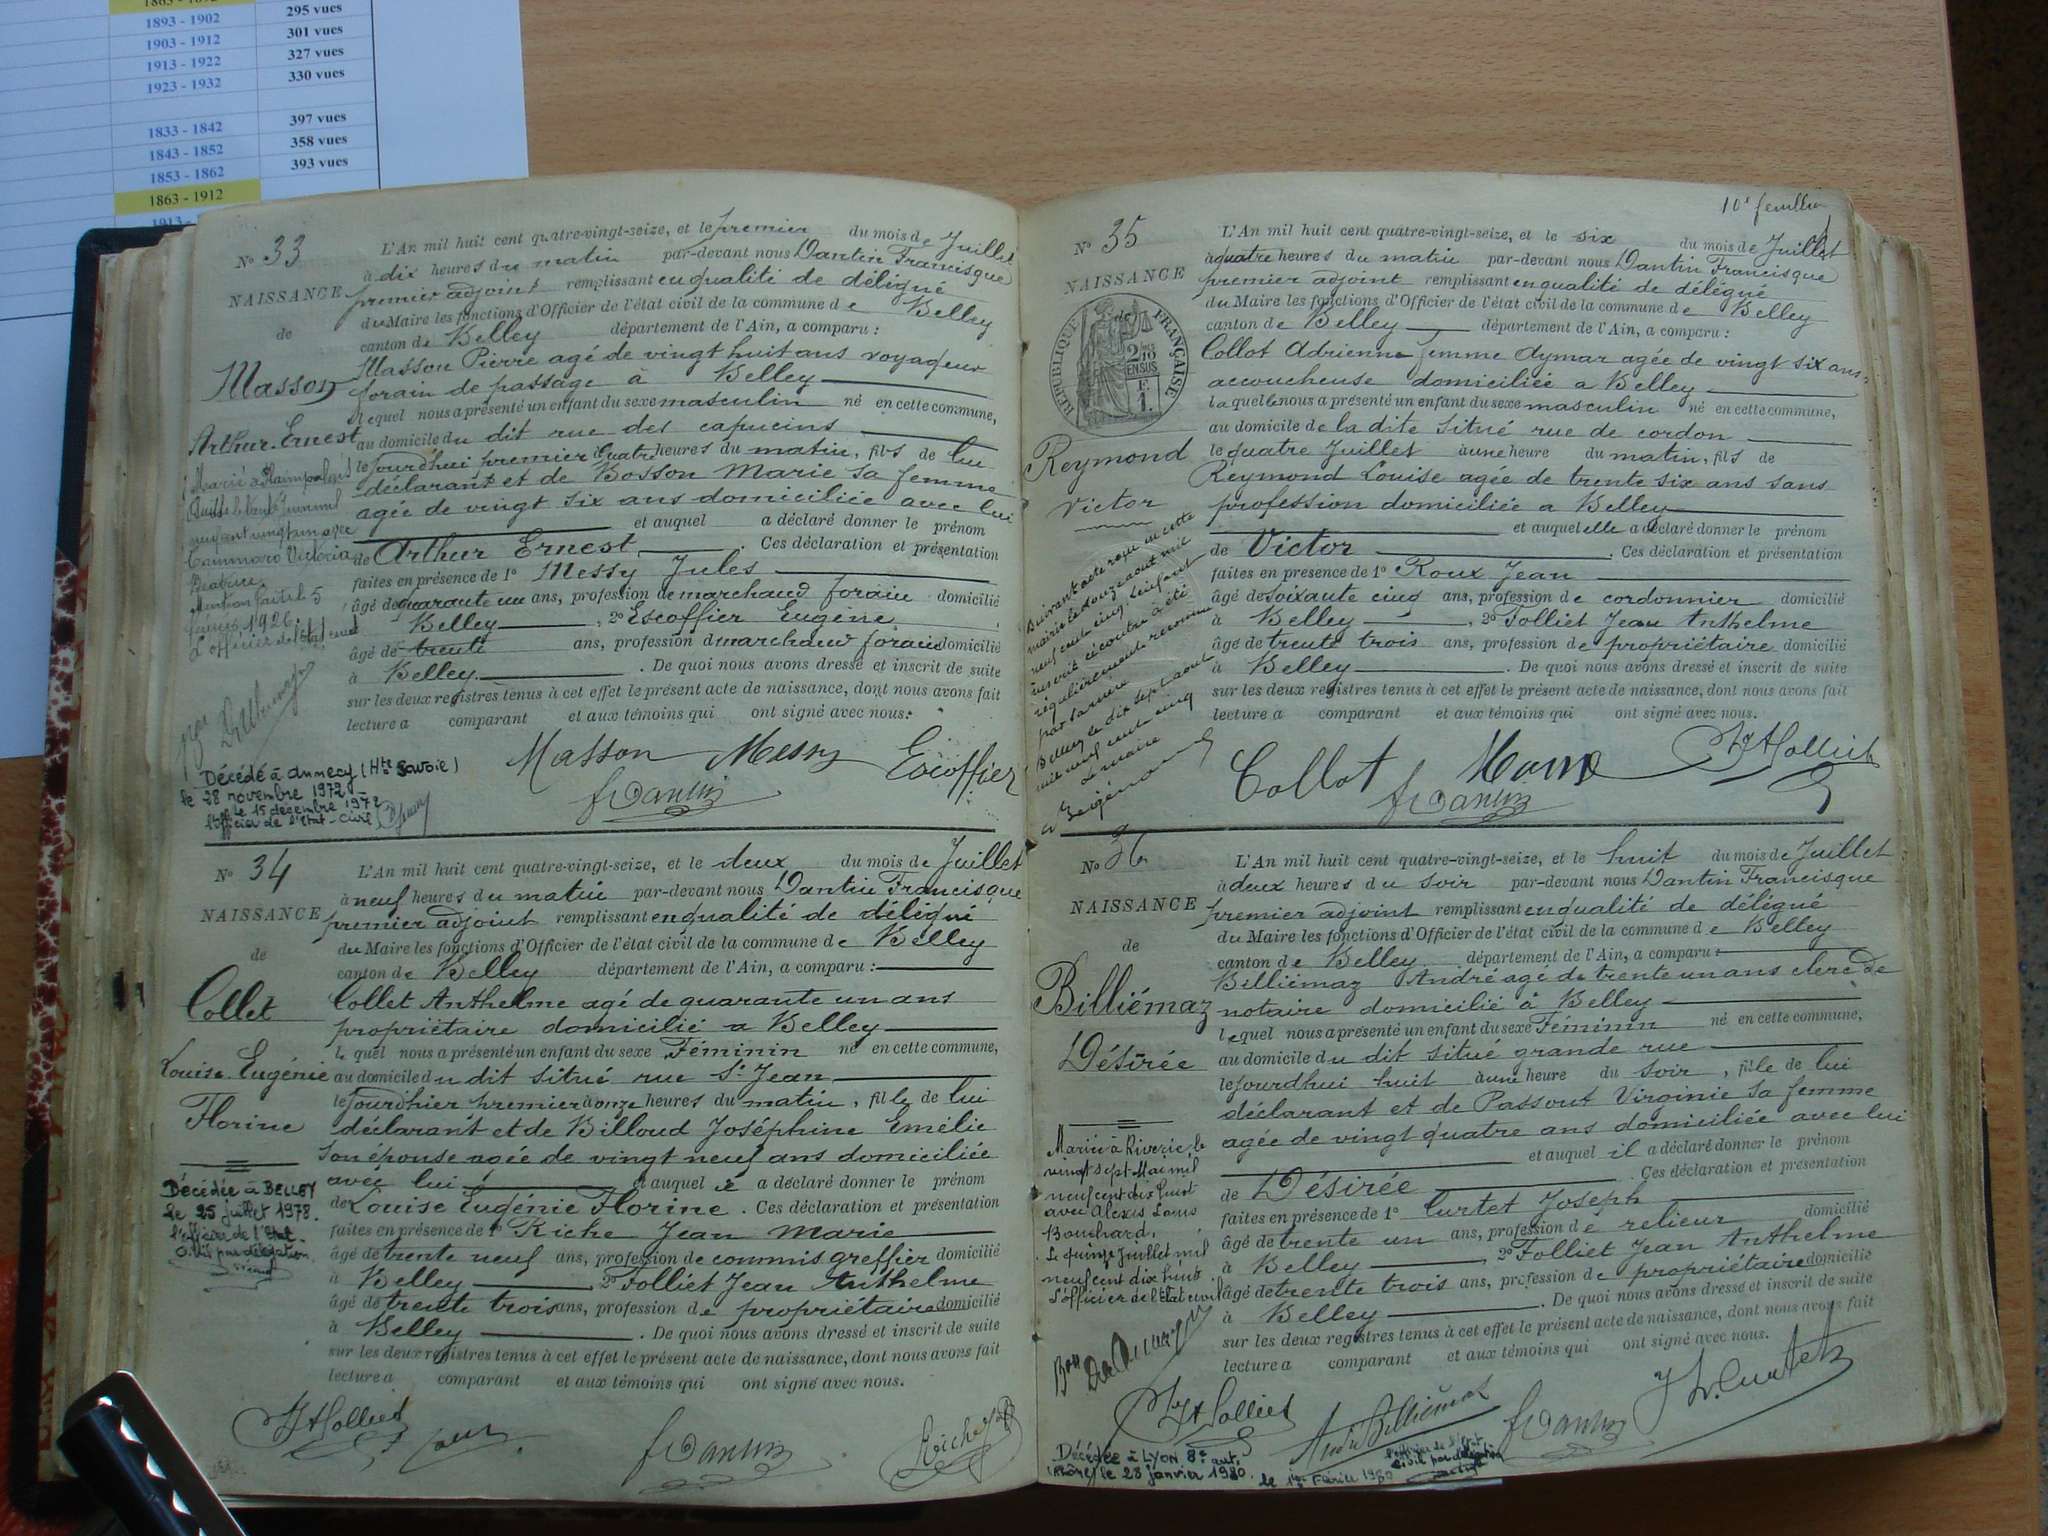 1893 - 1902 295 vues
1903 - 1912 301 vues
1913 - 1922 327 vues
1923 - 1932 330 vues
1833 - 1842 397 vues
1843 - 1852 358 vues
1853 - 1862 393 vues
1863 - 1912
N° 33
NAISSANCE
de
Masson
Arthur Ernest
L'An mil huit cent quatre-vingt-seize, et le premier du mois de Juillet
à dix heures du matin par-devant nous Dantin Francisque
premier adjoint remplissant en qualité de délégué
du Maire les fonctions d'Officier de l'état civil de la commune de Belley
canton de Belley département de l'Ain, a comparu :
Masson Pierre agé de vingt huit ans voyageur
forain de passage à Belley
lequel nous a présenté un enfant du sexe masculin né en cette commune,
au domicile du dit rue des capucins
le jourd'hui premier quatre heures du matin, fils de lui
déclarant et de Bosson Marie sa femme
agée de vingt six ans domiciliée avec lui
et auquel a déclaré donner le prénom
de Arthur Ernest. Ces déclaration et présentation
faites en présence de 1° Messy Jules
âgé de quarante un ans, profession de marchand forain domicilié
Belley, 2° Escoffier Eugène
âgé de trente ans, profession de marchand forain domicilié
à Belley. De quoi nous avons dressé et inscrit de suite
sur les deux registres tenus à cet effet le présent acte de naissance, dont nous avons fait
lecture a comparant et aux témoins qui ont signé avec nous.
Masson Messy Escoffier
F Dantin
Victoria
Mention faite le 5
1926.
L'officier de l'état civil
Décédé à Annecy (Hte Savoie)
le 28 novembre 1972
le 15 décembre 1972
l'officier de l'Etat-Civil
N° 34
NAISSANCE
de
Collet
Louise Eugénie
Florine
L'An mil huit cent quatre-vingt-seize, et le deux du mois de Juillet
à neuf heures du matin par-devant nous Dantin Francisque
premier adjoint remplissant en qualité de délégué
du Maire les fonctions d'Officier de l'état civil de la commune de Belley
canton de Belley département de l'Ain, a comparu :
Collet Anthelme agé de quarante un ans
propriétaire domicilié a Belley
le quel nous a présenté un enfant du sexe Féminin né en cette commune,
au domicile du dit situé rue St Jean
le jourdhier premier à onze heures du matin, fille de lui
déclarant et de Billoud Joséphine Emélie
son épouse agée de vingt neuf ans domiciliée
avec lui et auquel a déclaré donner le prénom
de Louise Eugénie Florine. Ces déclaration et présentation
faites en présence de 1° Riche Jean Marie
âgé de trente neuf ans, profession de commis greffier domicilié
à Belley 2° Folliet Jean Anthelme
âgé de trente trois ans, profession de propriétaire domicilié
à Belley. De quoi nous avons dressé et inscrit de suite
sur les deux registres tenus à cet effet le présent acte de naissance, dont nous avons fait
lecture a comparant et aux témoins qui ont signé avec nous.
F Dantin
Décédée à BELLEY
le 25 juillet 1978.
l'officier de l'Etat
Civil par délégation
10e feuillet
N° 35
NAISSANCE
de
RÉPUBLIQUE FRANÇAISE
Reymond
Victor
L'An mil huit cent quatre-vingt-seize, et le six du mois de Juillet
à quatre heures du matin par-devant nous Dantin Francisque
premier adjoint remplissant en qualité de délégué
du Maire les fonctions d'Officier de l'état civil de la commune de Belley
canton de Belley département de l'Ain, a comparu :
Collot Adrienne femme Aymar agée de vingt six ans
accoucheuse domiciliée a Belley
laquelle nous a présenté un enfant du sexe masculin né en cette commune,
au domicile de la dite situé rue de cordon
le quatre Juillet à une heure du matin, fils de
Reymond Louise agée de trente six ans sans
profession domiciliée a Belley
et auquel elle a déclaré donner le prénom
de Victor. Ces déclaration et présentation
faites en présence de 1° Roux Jean
âgé de soixante cinq ans, profession de cordonnier domicilié
à Belley, 2° Folliet Jean Anthelme
âgé de trente trois ans, profession de propriétaire domicilié
à Belley. De quoi nous avons dressé et inscrit de suite
sur les deux registres tenus à cet effet le présent acte de naissance, dont nous avons fait
lecture a comparant et aux témoins qui ont signé avec nous.
Collot
F Dantin
Suivant acte reçu en cette
mairie le douze août mil
neuf cent cinq l'enfant
inscrit ci contre a été
régulièrement reconnu
par sa mère
Belley le dix sept août
mil neuf cent cinq
Le maire
N° 36
NAISSANCE
de
Billiémaz
Désirée
L'An mil huit cent quatre-vingt-seize, et le huit du mois de Juillet
à deux heures du soir par-devant nous Dantin Francisque
premier adjoint remplissant en qualité de délégué
du Maire les fonctions d'Officier de l'état civil de la commune de Belley
canton de Belley département de l'Ain, a comparu :
Billiémaz André agé de trente un ans clerc de
notaire domicilié à Belley
lequel nous a présenté un enfant du sexe Féminin né en cette commune,
au domicile du dit situé grande rue
le jourdhui huit à une heure du soir, fille de lui
déclarant et de Passout Virginie sa femme
agée de vingt quatre ans domiciliée avec lui
et auquel il a déclaré donner le prénom
de Désirée. Ces déclaration et présentation
faites en présence de 1° Curtet Joseph
âgé de trente un ans, profession de relieur domicilié
à Belley, 2° Folliet Jean Anthelme
âgé de trente trois ans, profession de propriétaire domicilié
à Belley. De quoi nous avons dressé et inscrit de suite
sur les deux registres tenus à cet effet le présent acte de naissance, dont nous avons fait
lecture a comparant et aux témoins qui ont signé avec nous.
André Billiémaz F Dantin
Mariée à Riverie le
vingt sept Mai mil
neuf cent dix huit
avec Alexis Louis
Bouchard.
Le quinze Juillet mil
neuf cent dix huit
L'officier de l'Etat civil
Décédée à LYON 8e
(Rhône) le 28 janvier 1980.
le 1er Février 1980